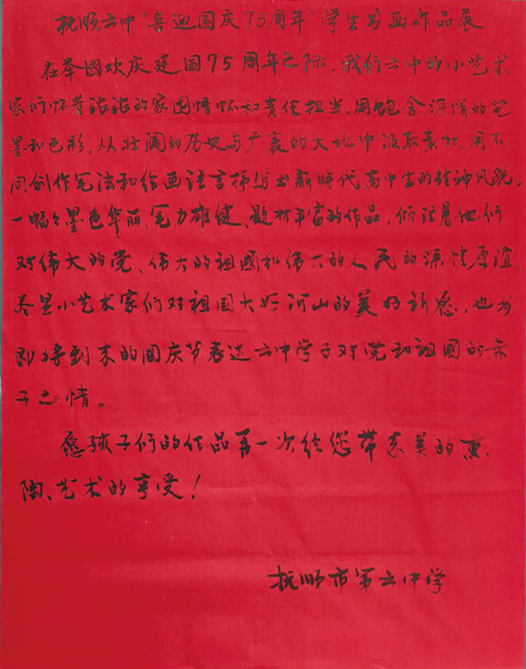 抚顺六中“喜迎国庆75周年”学生书画作品展
在举國欢庆建国75周年之际，我们六中的小艺术
家们怀着浓浓的家国情怀和责任担当，用饱含深情的笔
墨和色彩，从壮阔的历史与广袤的大地中汲取素材，用不
同创作笔法和绘画语言描绘出新時代高中生的精神风貌。
一幅幅墨色华丽、笔力雄健、题材丰富的作品，倾注着他们
对伟大的党、伟大的祖國和伟大的人民的深情厚谊
尽显小艺术家们对祖国大好河山的美好祈愿，也为
即将到来的國庆节表达六中学子对党和祖國的赤
子之情。
愿孩子们的作品再一次给您带来美的熏
陶、艺术的享受！
抚顺市第六中学